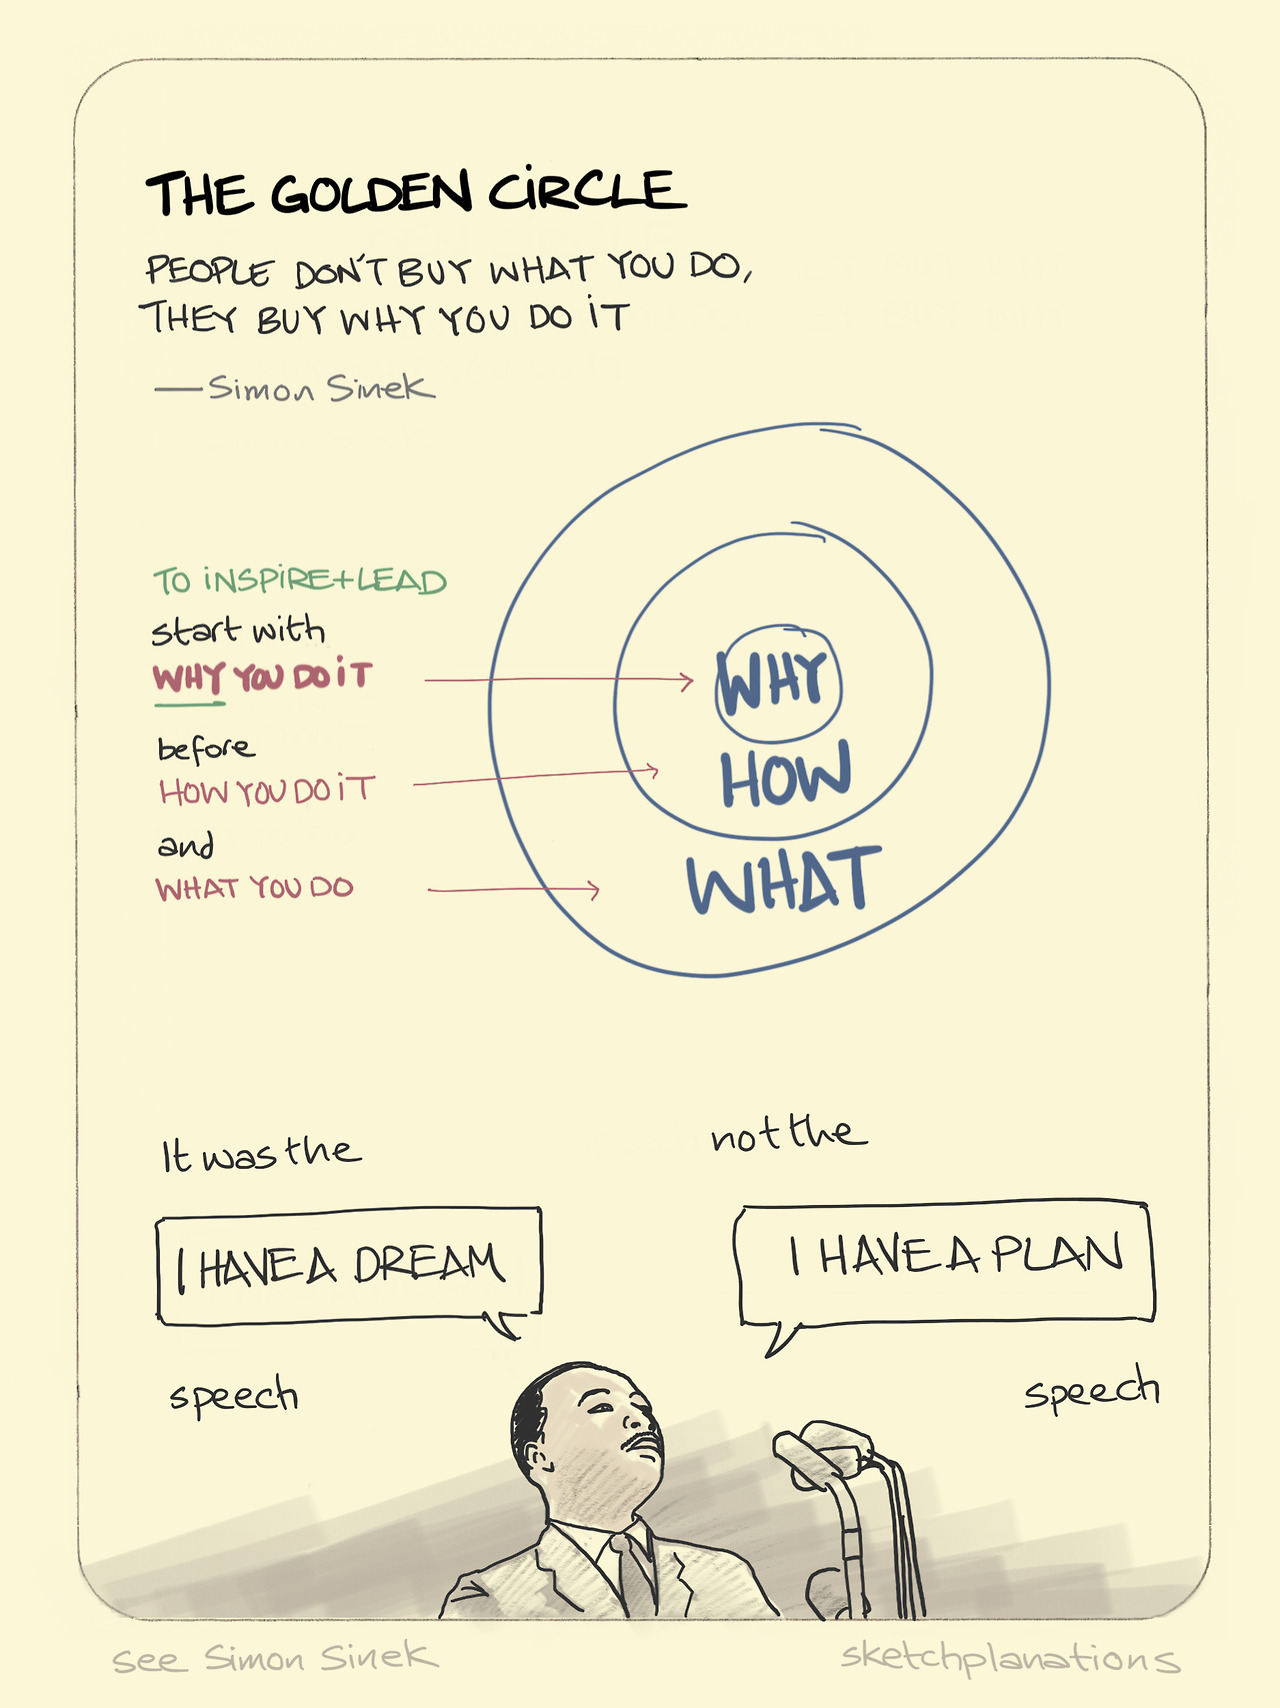 THE GOLDEN CiRCLE
PEOPLE DON'T BUY WHAT YOU DO,
THEY BUY WHY YOU DO iT
— Simon Sinek
TO iNSPiRE+LEAD
start with
WHY YOU DO iT
before
HOW YOU DO iT
and
WHAT YOU DO
WHY
HOW
WHAT
It was the
I HAVE A DREAM
speech
not the
I HAVE A PLAN
speech
see Simon Sinek
sketchplanations